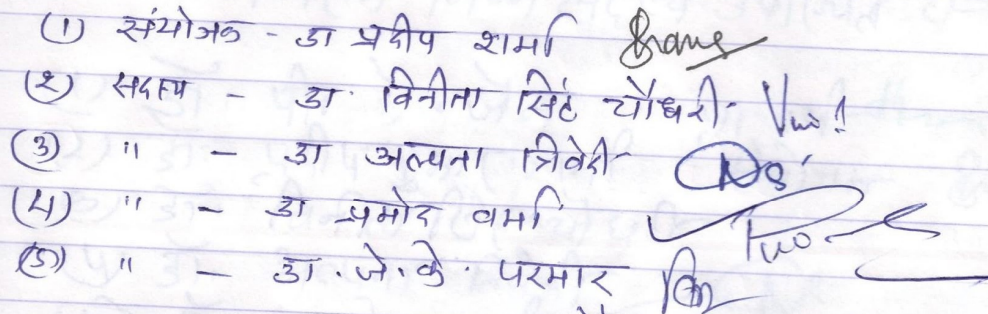 (1) संयोजक - डा प्रदीप शर्मा
(२) सदस्य - डा. विनीता सिंह चौधरी
(3) " - डा अल्पना त्रिवेदी
(4) " - डा प्रमोद वर्मा
(5) " - डा. जे. के. परमार